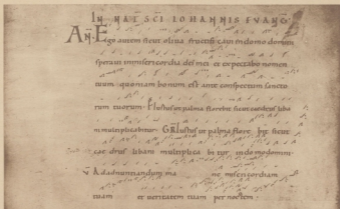 IN NAT SCI IOHANNIS EVANG
AN Ego autem sicut oliva fructificavi in domo domini
speravi in misericordia dei mei et expectabo nomen
tuum quoniam bonum est ante conspectum sanctorum
rum tuorum Iustus ut palma florebit sicut cedrus libani
multiplicabitur GR Iustus ut palma flore bit sicut
cedrus libani multiplica bi tur in domo domini
V Ad adnuntiandum ma ne misericordiam
tuam et veritatem tuam per noctem